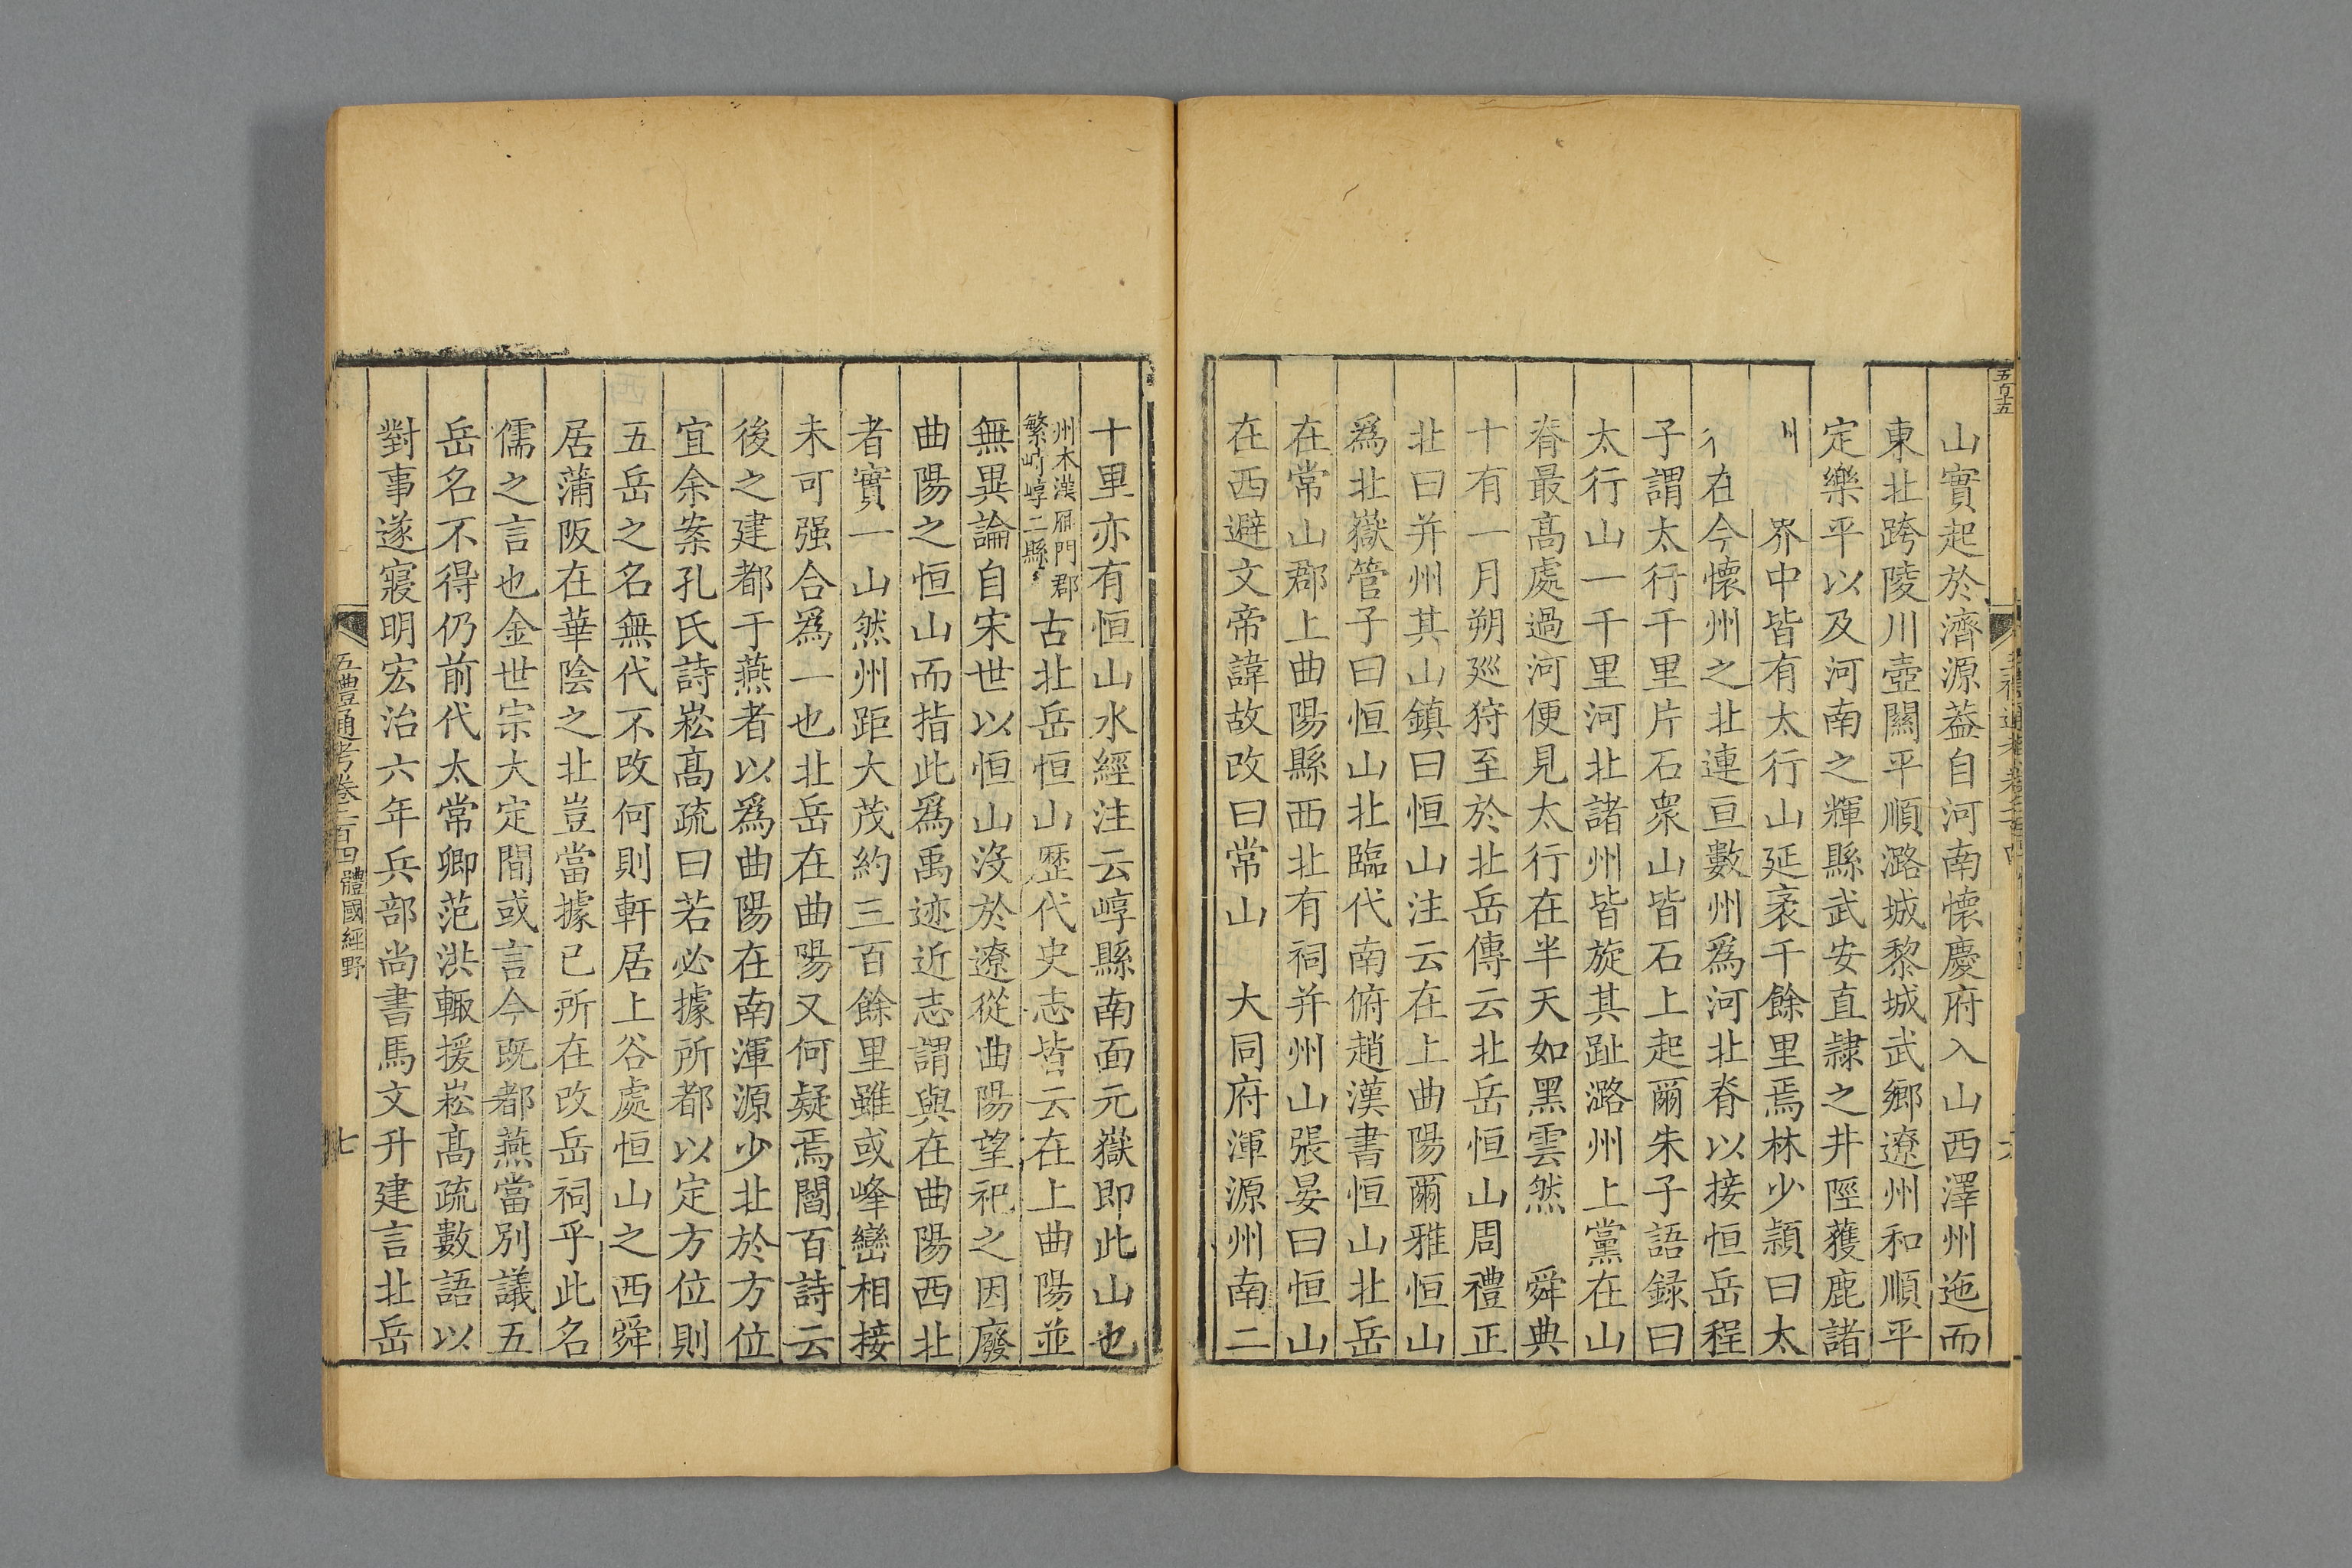 山實起於濟源葢自河南懷慶府入山西澤州迤而
東北跨陵川壺關平順潞城黎城武鄉遼州和順平
定樂平以及河南之輝縣武安直隷之井陘獲鹿諸
界中皆有太行山延袤千餘里焉林少潁曰太
在今懷州之北連亘數州爲河北脊以接恒岳程
子謂太行千里片石衆山皆石上起爾朱子語録曰
太行山一千里河北諸州皆旋其趾潞州上黨在山
脊最髙處過河便見太行在半天如黑雲然　舜典
十有一月朔廵狩至於北岳傳云北岳恒山周禮正
北曰并州其山鎮曰恒山注云在上曲陽爾雅恒山
爲北嶽管子曰恒山北臨代南俯趙漢書恒山北岳
在常山郡上曲陽縣西北有祠并州山張晏曰恒山
在西避文帝諱故改曰常山　大同府渾源州南二
十里亦有恒山水經注云崞縣南面元嶽即此山也
州本漢鴈門郡
繁峙崞二縣
古北岳恒山歴代史志皆云在上曲陽並
無異論自宋世以恒山沒於遼從曲陽望祀之因廢
曲陽之恒山而指此爲禹迹近志謂與在曲陽西北
者實一山然州距大茂約三百餘里雖或峰巒相接
未可强合爲一也北岳在曲陽又何疑焉閻百詩云
後之建都于燕者以爲曲陽在南渾源少北於方位
宜余案孔氏詩崧髙疏曰若必據所都以定方位則
五岳之名無代不改何則軒居上谷處恒山之西舜
居蒲阪在華陰之北豈當據已所在改岳祠乎此名
儒之言也金世宗大定間或言今旣都燕當別議五
岳名不得仍前代太常卿范洪輙援崧髙疏數語以
對事遂寢明宏治六年兵部尚書馬文升建言北岳
五禮通考卷二百四體國經野
七